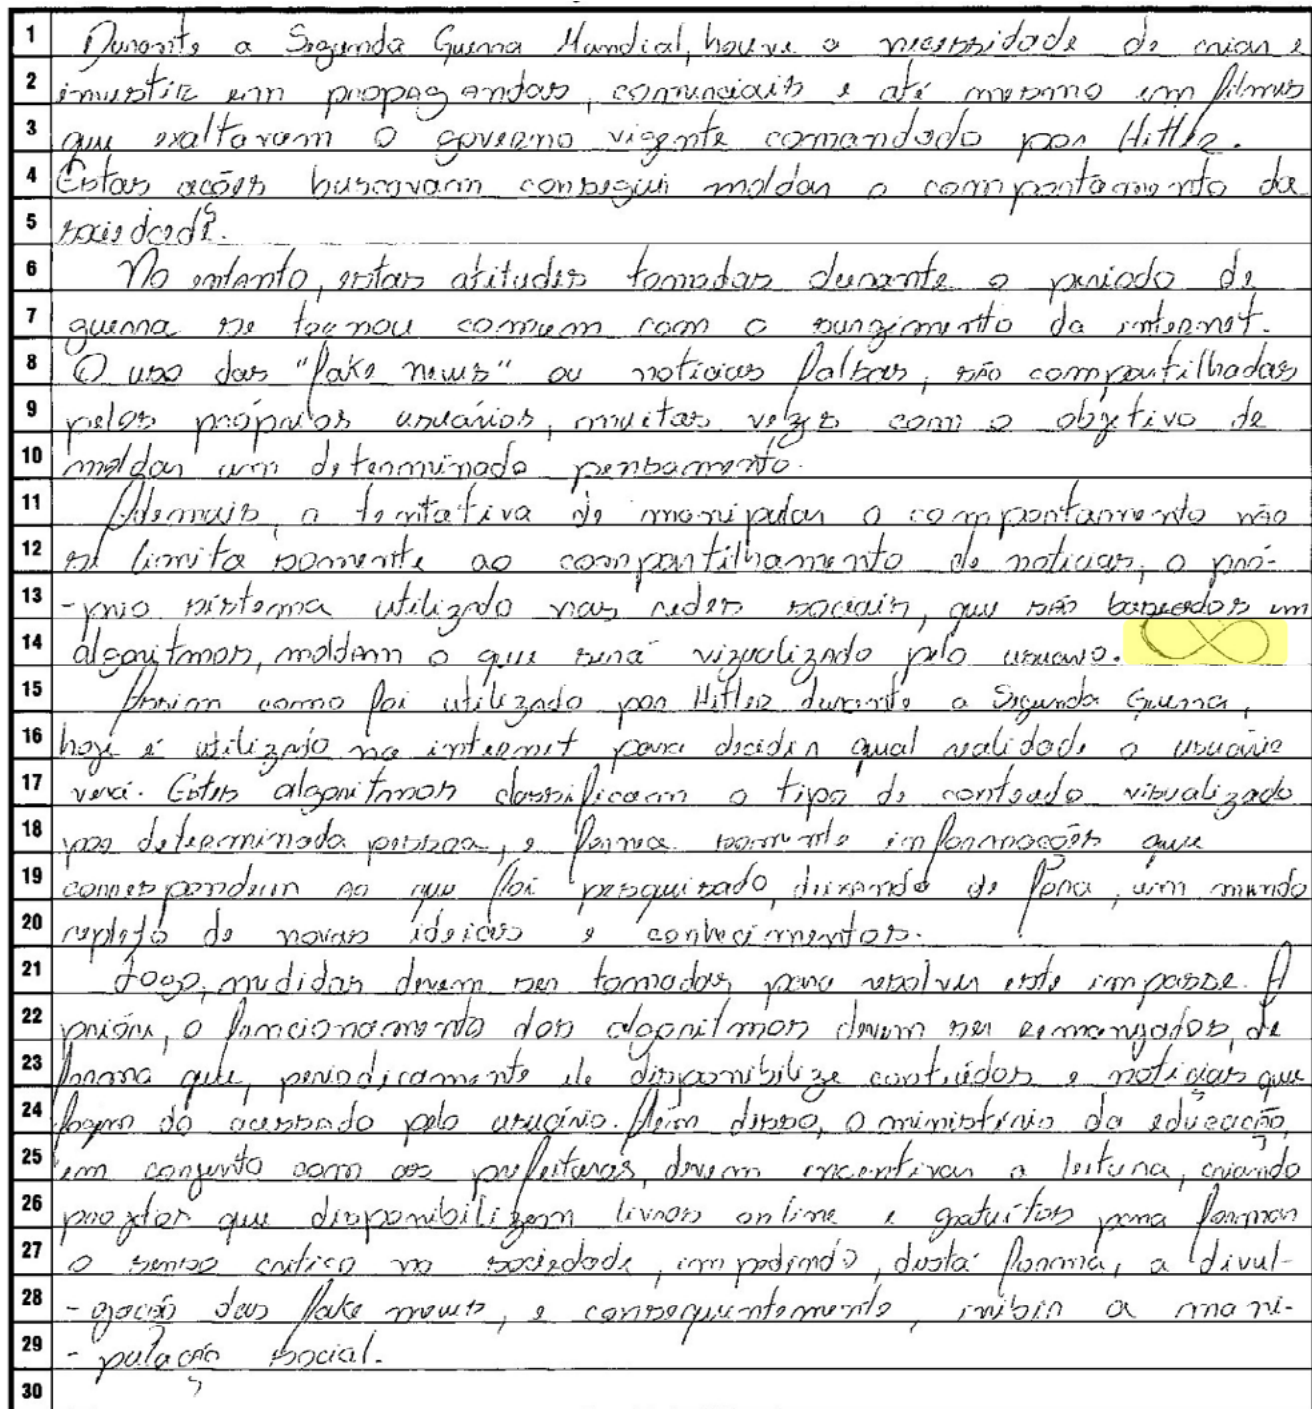 1 Durante a Segunda Guerra Mundial, houve a necessidade de criar e
2 investir em propagandas, comerciais e até mesmo em filmes
3 que exaltavam o governo vigente comandado por Hitler.
4 Estas ações buscavam conseguir moldar o comportamento da
5 sociedade.
6 No entanto, estas atitudes tomadas durante o período de
7 guerra se tornou comum com o surgimento da internet.
8 O uso das "fake news" ou notícias falsas, são compartilhadas
9 pelos próprios usuários, muitas vezes com o objetivo de
10 moldar um determinado pensamento.
11 Ademais, a tentativa de manipular o comportamento não
12 se limita somente ao compartilhamento de notícias, o pró-
13 -prio sistema utilizado nas redes sociais, que são baseados em
14 algoritmos, moldam o que será vizualizado pelo usuário.
15 Assim como foi utilizado por Hitler durante a Segunda Guerra,
16 hoje é utilizado na internet para decidir qual realidade o usuário
17 verá. Estes algoritmos classificam o tipo de conteúdo visualizado
18 por determinada pessoa, e forma somente informações que
19 correspondem ao que foi pesquisado, deixando de fora, um mundo
20 repleto de novas idéias e conhecimentos.
21 Logo, medidas devem ser tomadas para resolver este impasse. A
22 prióri, o funcionamento dos algoritmos devem ser remanejados, de
23 forma que, periodicamente ele disponibilize conteúdos e notícias que
24 fogem do acessado pelo usuário. Além disso, o ministério da educação,
25 em conjunto com as prefeituras, devem incentivar a leitura, criando
26 projetos que disponibilizem livros online e gratuitos para formar
27 o senso crítico na sociedade, impedindo, desta forma, a divul-
28 -gação das fake news, e consequentemente, inibir a mani-
29 -pulação social.
30